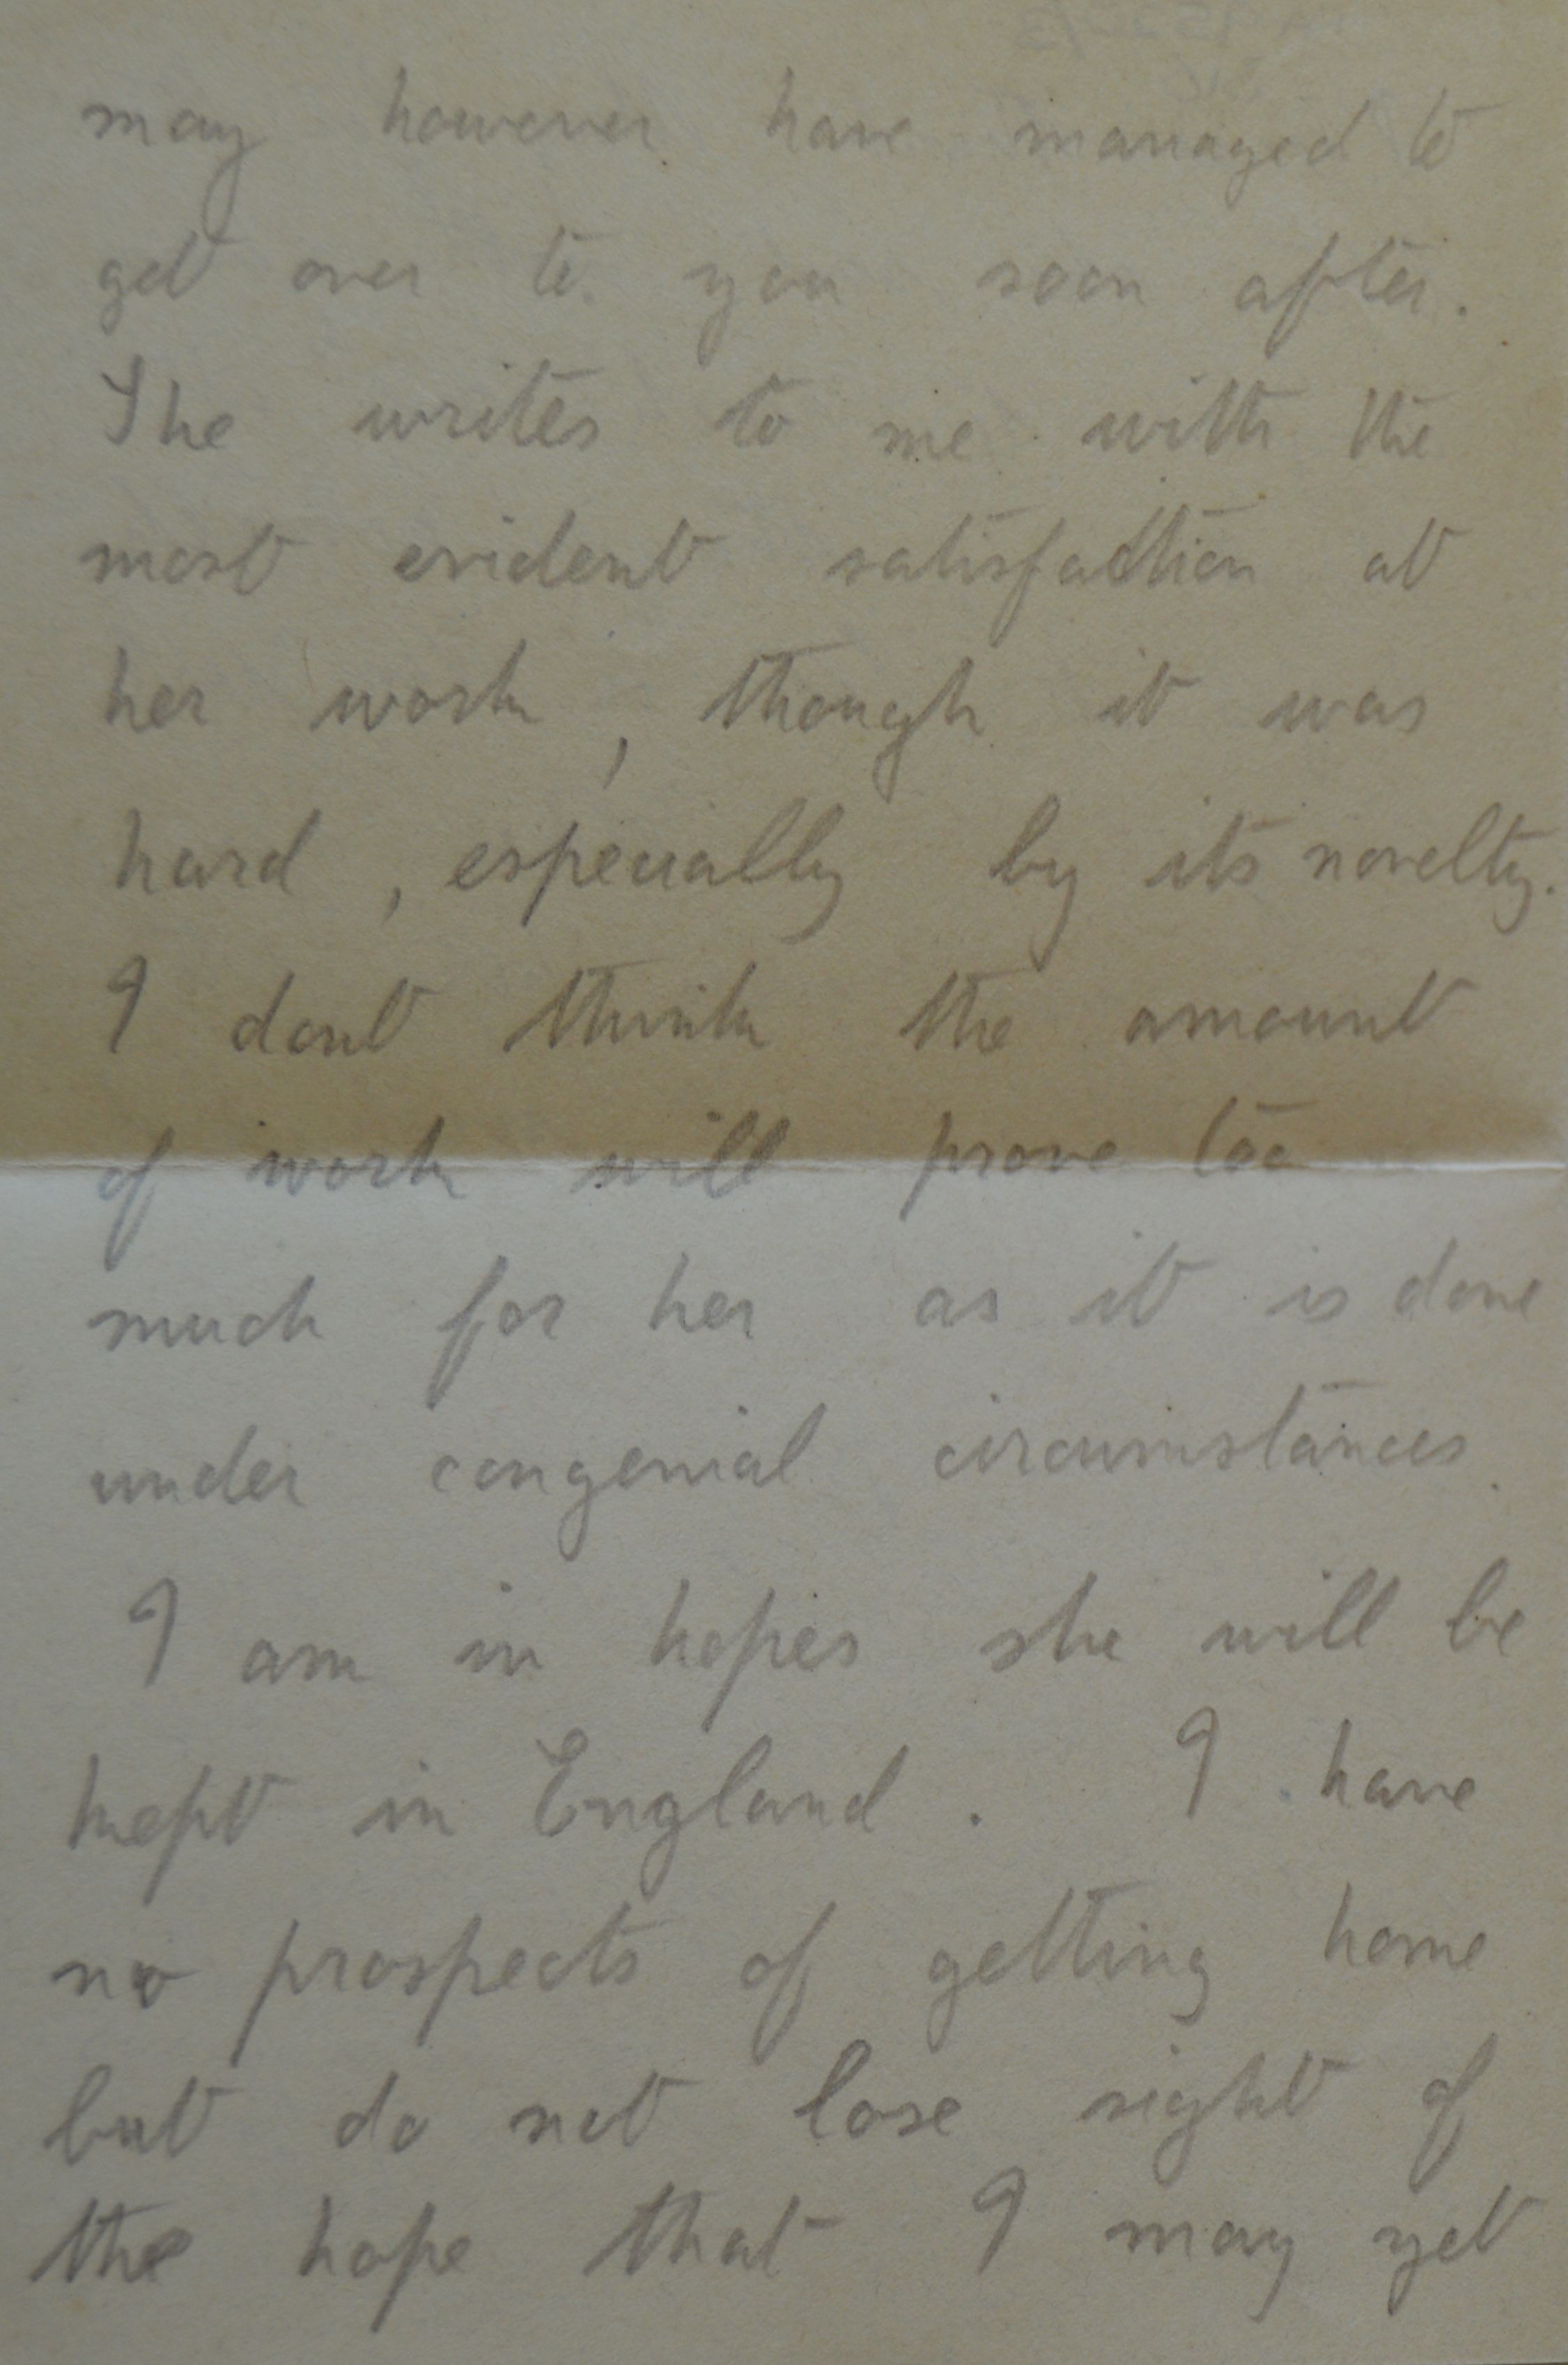 may however have managed to
get over to you soon after.
She writes to me with the
most evident satisfaction at
her work, though it was
hard, especially by its novelty.
I dont think the amount
of work will prove too
much for her as it is done
under congenial circumstances.
I am in hopes she will be
kept in England. I have
no prospects of getting home
but do not lose sight of
the hope that I may yet